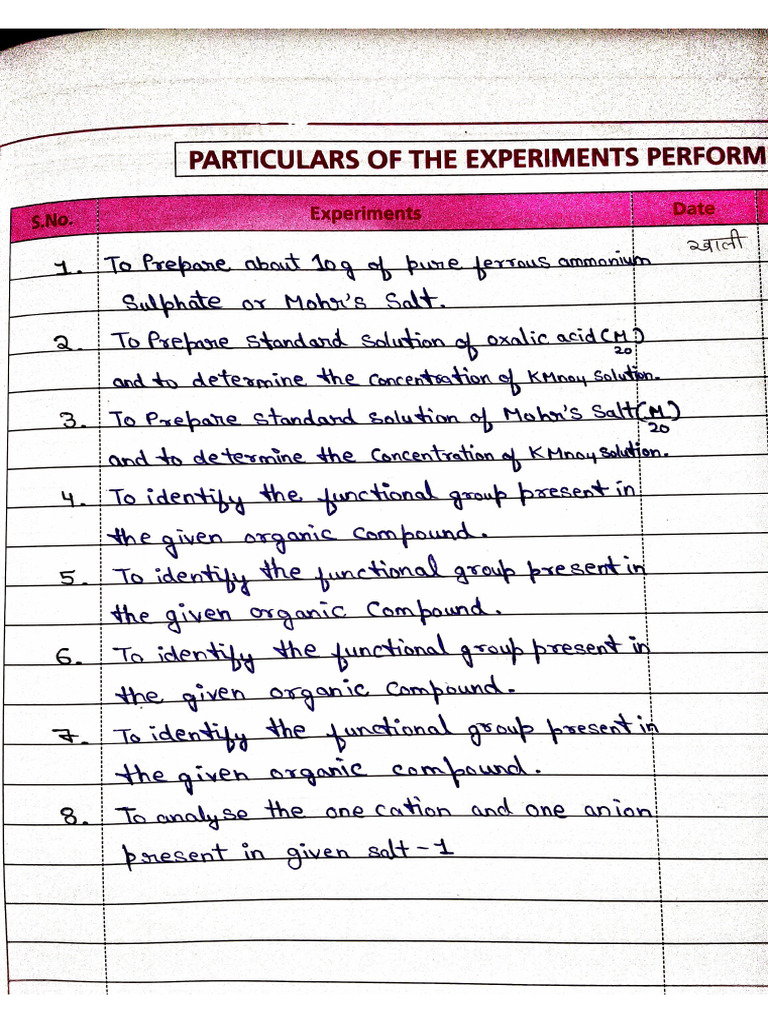 PARTICULARS OF THE EXPERIMENTS PERFORM
S.No. Experiments Date
खाली
1. To Prepare about 10g of pure ferrous ammonium
Sulphate or Mohr's Salt.
2. To Prepare standard solution of oxalic acid (M/20)
and to determine the concentration of KMnO4 solution.
3. To Prepare standard solution of Mohr's Salt (M/20)
and to determine the concentration of KMnO4 solution.
4. To identify the functional group present in
the given organic compound.
5. To identify the functional group present in
the given organic compound.
6. To identify the functional group present in
the given organic compound.
7. To identify the functional group present in
the given organic compound.
8. To analyse the one cation and one anion
present in given salt-1